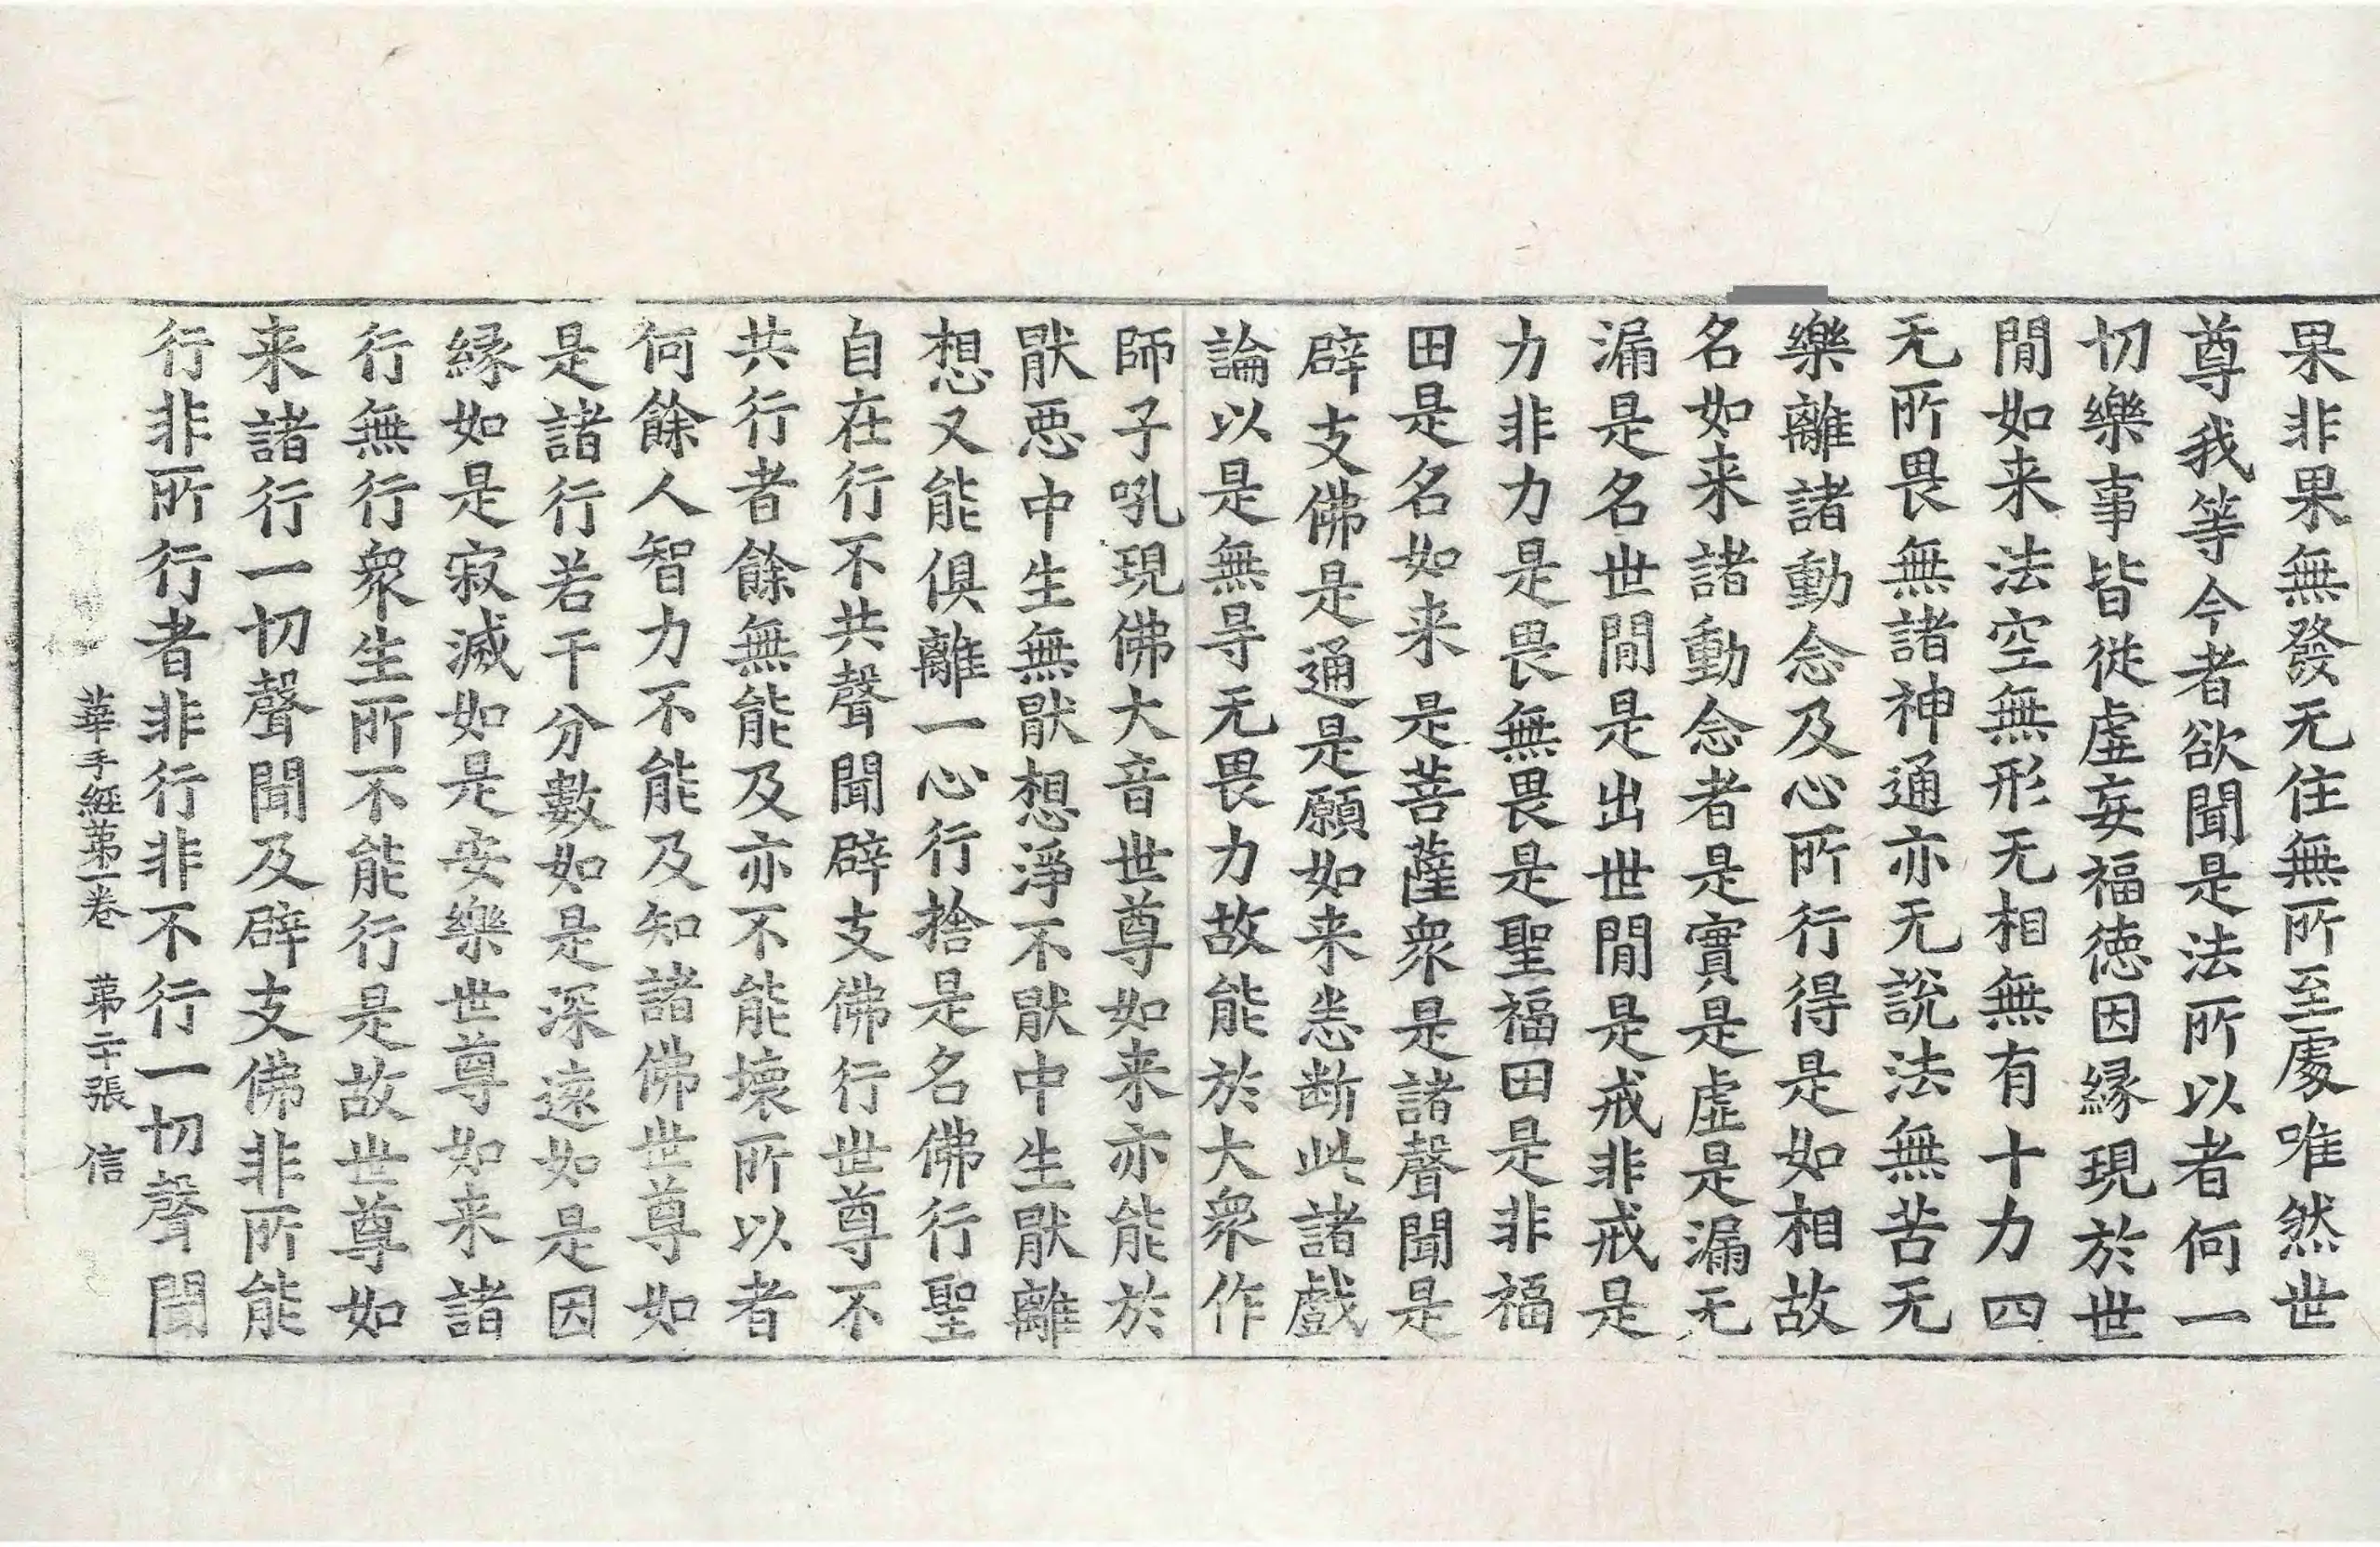 果非果無發无住無所至處唯然世
尊我等今者欲聞是法所以者何一
切樂事皆從虛妄福德因縁現於世
閒如来法空無形无相無有十力四
无所畏無諸神通亦无說法無苦无
樂離諸動念及心所行得是如相故
名如来諸動念者是實是虛是漏无
漏是名世閒是出世閒是戒非戒是
力非力是畏無畏是聖福田是非福
田是名如来是菩薩衆是諸聲聞是
辟支佛是通是願如来悉断此諸戲
論以是無㝵无畏力故能於大衆作
師子吼現佛大音世尊如来亦能於
猒惡中生無猒想淨不猒中生猒離
想又能俱離一心行捨是名佛行聖
自在行不共聲聞辟支佛行世尊不
共行者餘無能及亦不能壞所以者
何餘人智力不能及知諸佛世尊如
是諸行若干分數如是深遠如是因
縁如是寂滅如是安樂世尊如来諸
行無行衆生所不能行是故世尊如
来諸行一切聲聞及辟支佛非所能
行非所行者非行非不行一切聲聞
華手經苐一卷 苐二十張 信